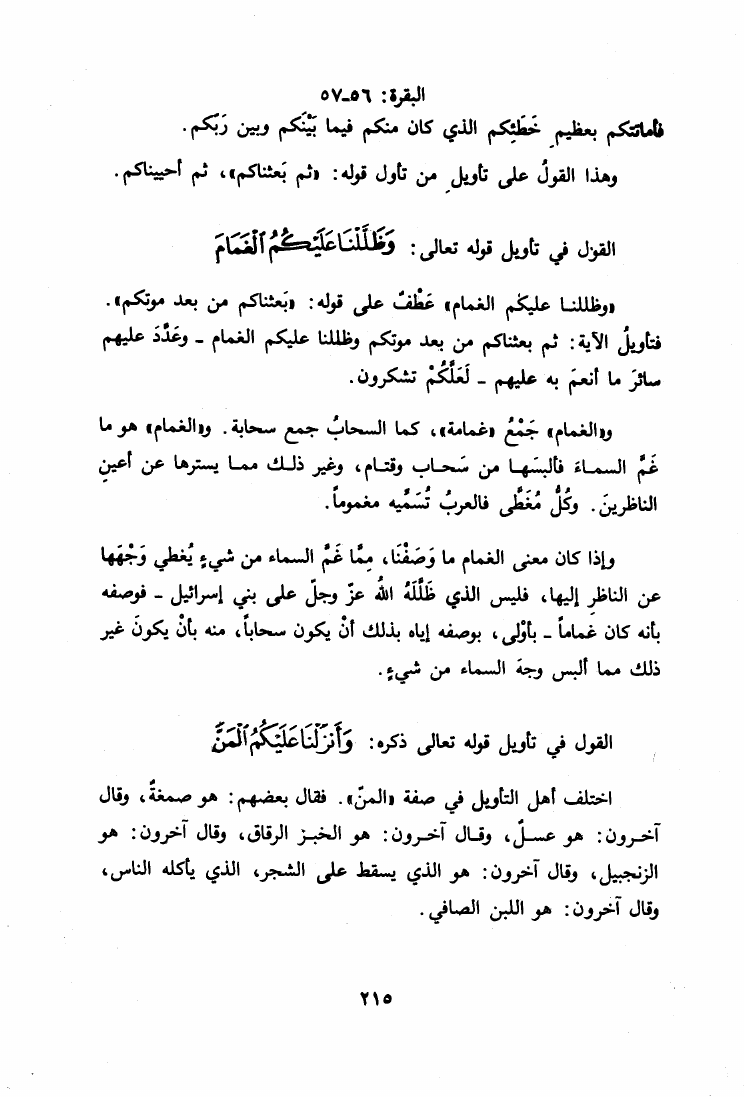 البقرة: ٥٦-٥٧
فأماتتكم بعظيمِ خَطَئِكم الذي كان منكم فيما بَيْنَكم وبين رَبِّكم.
وهذا القولُ على تأويلِ من تأول قوله: «ثم بَعثناكم»، ثم أحييناكم.
القول في تأويل قوله تعالى: وَظَلَّلْنَا عَلَيْكُمُ ٱلْغَمَامَ
«وظللنا عليكم الغمام» عَطْفٌ على قوله: «بَعثناكم من بعد موتكم».
فتأويلُ الآية: ثم بعثناكم من بعد موتكم وظللنا عليكم الغمام - وعَدَّدَ عليهم
سائرَ ما أنعمَ به عليهم - لَعَلَّكُمْ تشكرون.
و«الغمام» جَمْعُ «غمامة»، كما السحابُ جمع سحابة. و«الغمام» هو ما
غَمَّ السماءَ فألبسَها من سَحاب وقتام، وغير ذلك مما يسترها عن أعينِ
الناظرينَ. وكُلُّ مُغَطًّى فالعربُ تُسَمِّيه مغموماً.
وإذا كان معنى الغمام ما وَصَفْنَا، مِمَّا غَمَّ السماء من شيءٍ يُغطي وَجْهَها
عن الناظرِ إليها، فليس الذي ظَلَّلَهُ اللهُ عزّ وجلّ على بني إسرائيل - فوصفه
بأنه كان غماماً - بأوْلى، بوصفه إياه بذلك أنْ يكون سحاباً، منه بأنْ يكونَ غير
ذلك مما ألبس وجهَ السماء من شيءٍ.
القول في تأويل قوله تعالى ذكره: وَأَنزَلْنَا عَلَيْكُمُ ٱلْمَنَّ
اختلف أهل التأويل في صفة «المنّ». فقال بعضهم: هو صمغةٌ، وقال
آخرون: هو عسلٌ، وقال آخرون: هو الخبز الرقاق، وقال آخرون: هو
الزنجبيل، وقال آخرون: هو الذي يسقط على الشجر، الذي يأكله الناس،
وقال آخرون: هو اللبن الصافي.
٢١٥